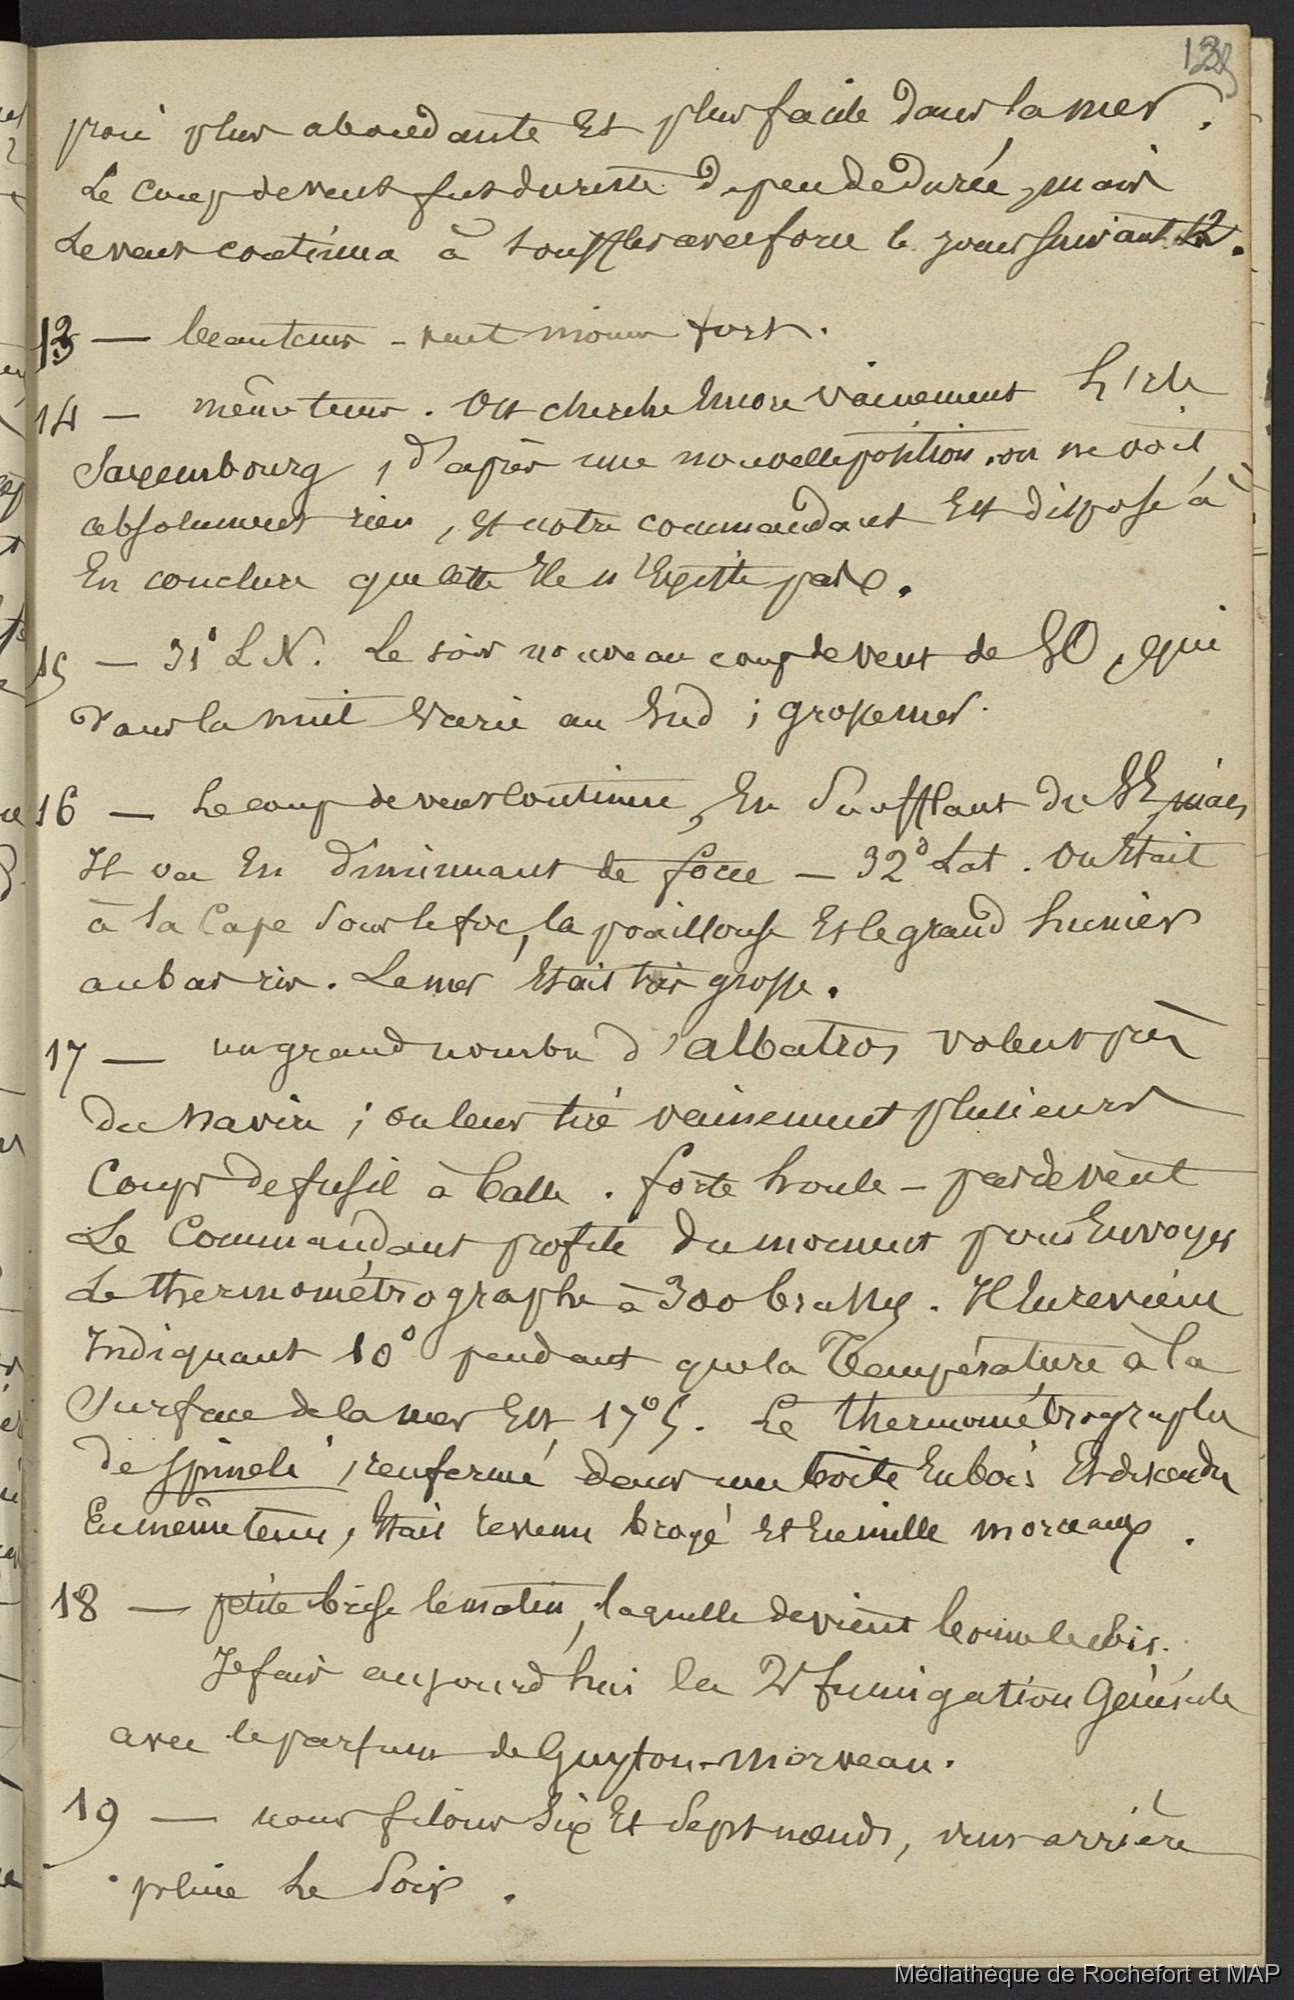 135
proie plus abondante Et plus facile dans la mer.
Le coup de vent fut du reste de peu de durée, mais
le vent continua à souffler avec force le jour suivant 12.
13 — beau tems - vent moins fort.
14 — même tems. On cherche Encore vainement L'isle
Saxembourg, d'après une nouvelle position. on ne voit
absolument rien, et notre commandant Est disposé à
En conclure que cette Ile n'Existe pas.
15 — 31° L N. Le soir nouveau coup de vent de SO, qui
dans la nuit varie au Sud ; grosse mer.
16 — Le coup de vent continue, En Soufflant du SE, mais
Il va En diminuant de force — 32° Lat. On Etait
à la Cape Sous le foc, la pouillouse Et le grand hunier
au bas ris. La mer Etait très grosse.
17 — un grand nombre d'albatros volent près
du Navire ; on leur tire vainement plusieurs
Coups de fusil à balle. forte houle - pas de vent
Le Commandant profite du moment pour Envoyer
Le thermométrographe à 300 brasses. Il En revient
Indiquant 10° pendant que la Température à la
Surface de la mer Est 17°5. Le thermométrographe
de , renfermé dans une boite En bois Et descendu
En même tems, Etait revenu broyé Et En mille morceaux.
18 — petite brise le matin, laquelle devient bonne le soir.
Je fais aujourd'hui la 2e fumigation Générale
avec le parfum de Guyton-Morveau.
19 — nous filons Six Et Sept nœuds, vent arrière
pluie Le Soir.
Médiathèque de Rochefort et MAP